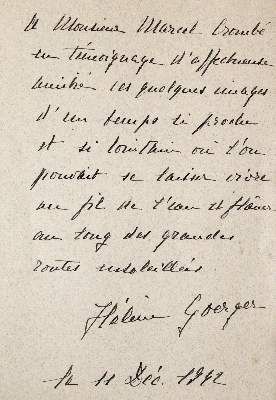 A Monsieur Marcel Crombé
en témoignage d'affectueuse
amitié ces quelques images
d'un temps si proche
et si lointain où l'on
pouvait se laisser vivre
au fil de l'eau et flâner
au long des grandes
routes ensoleillées
Hélène Goerger
le 11 Déc. 1942